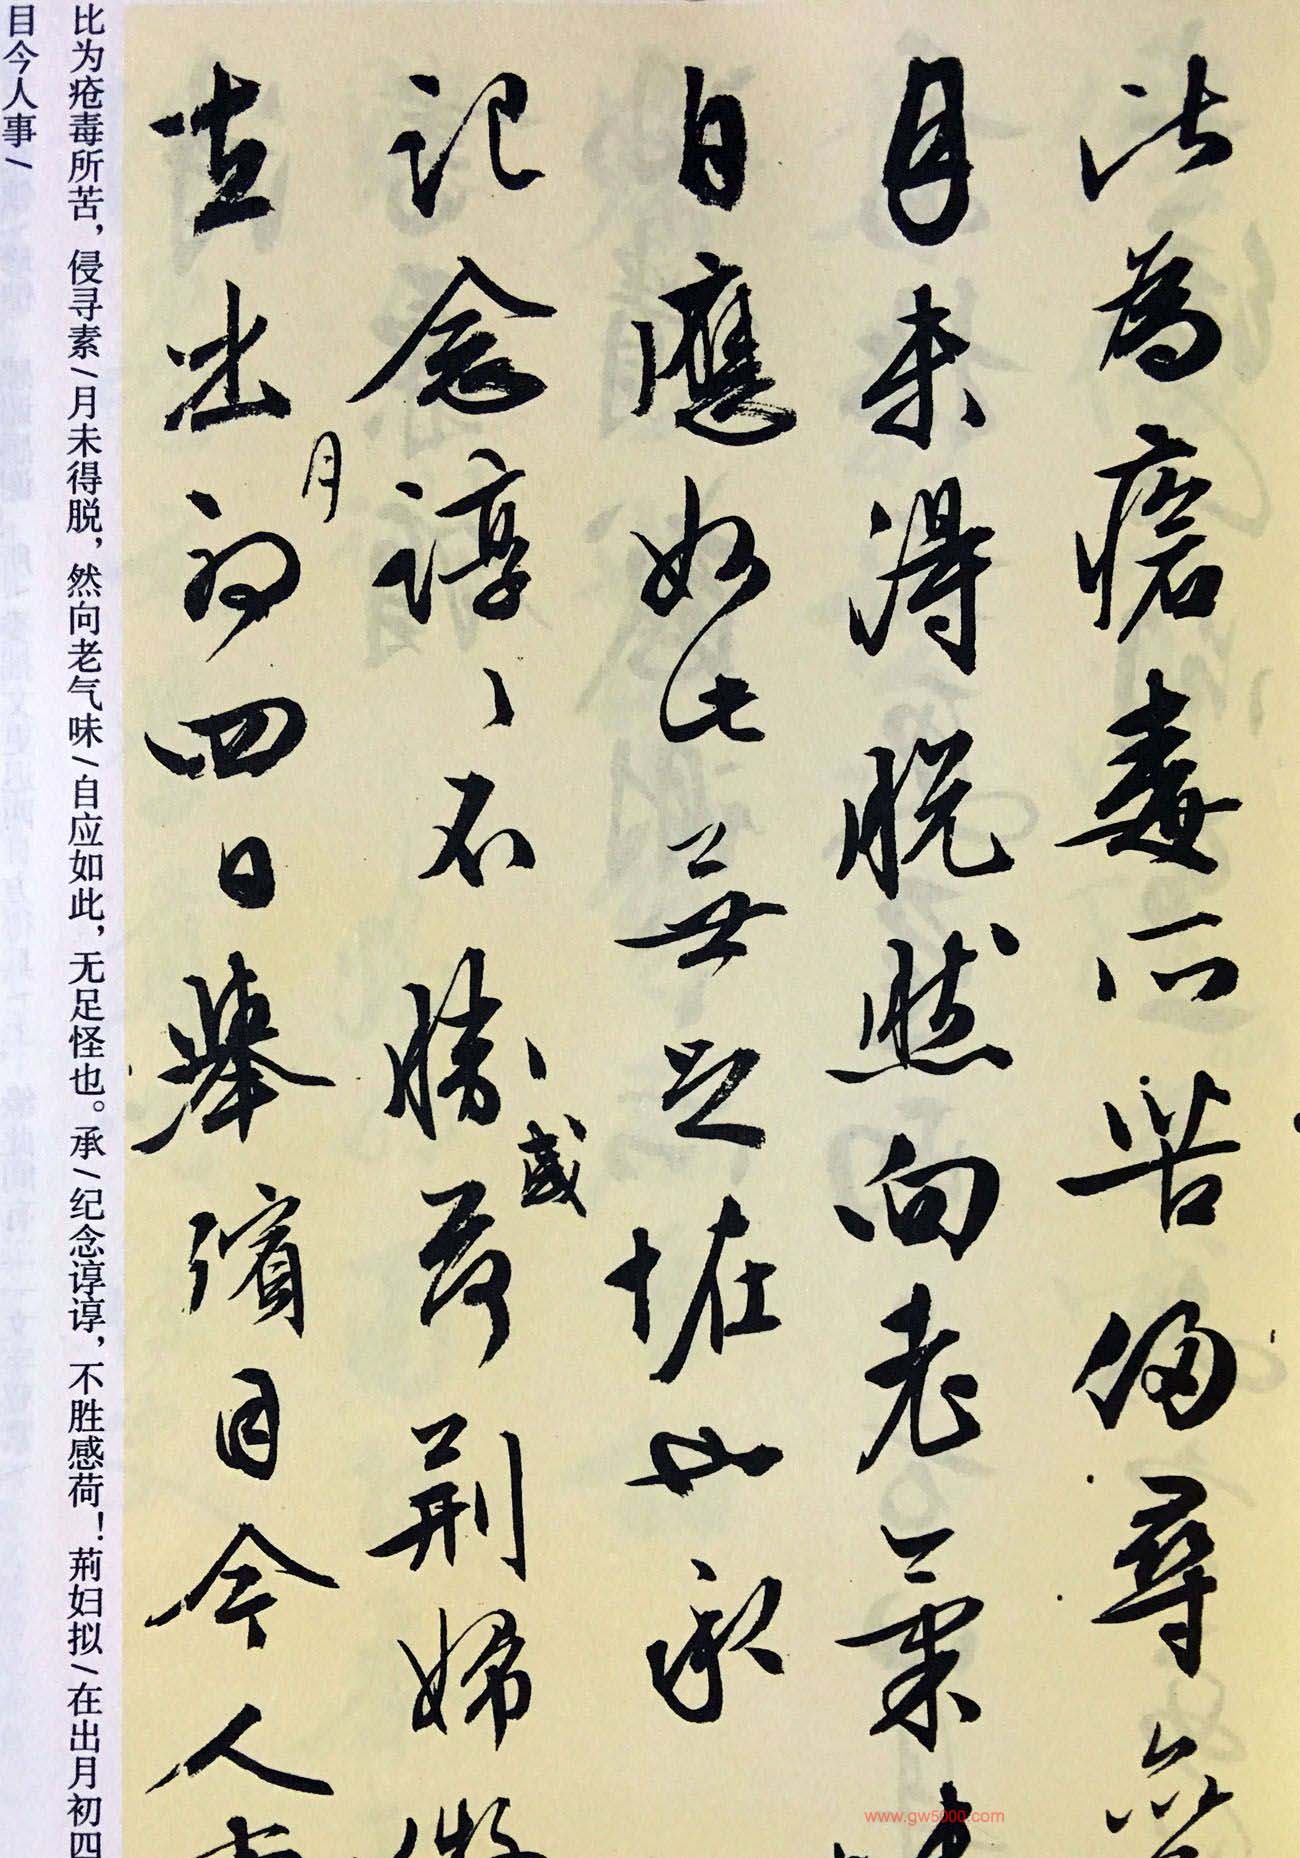 比為瘡毒所苦侵尋
月未得脱然向老氣
自應如此無足怪也承
記念諄〻不勝感荷荆婦
在出月初四日舉殯目今人
比为疮毒所苦，侵寻素/月未得脱，然向老气味/自应如此，无足怪也。承/纪念谆谆，不胜感荷！荆妇拟/在出月初四
目今人事/
www.gw5000.com